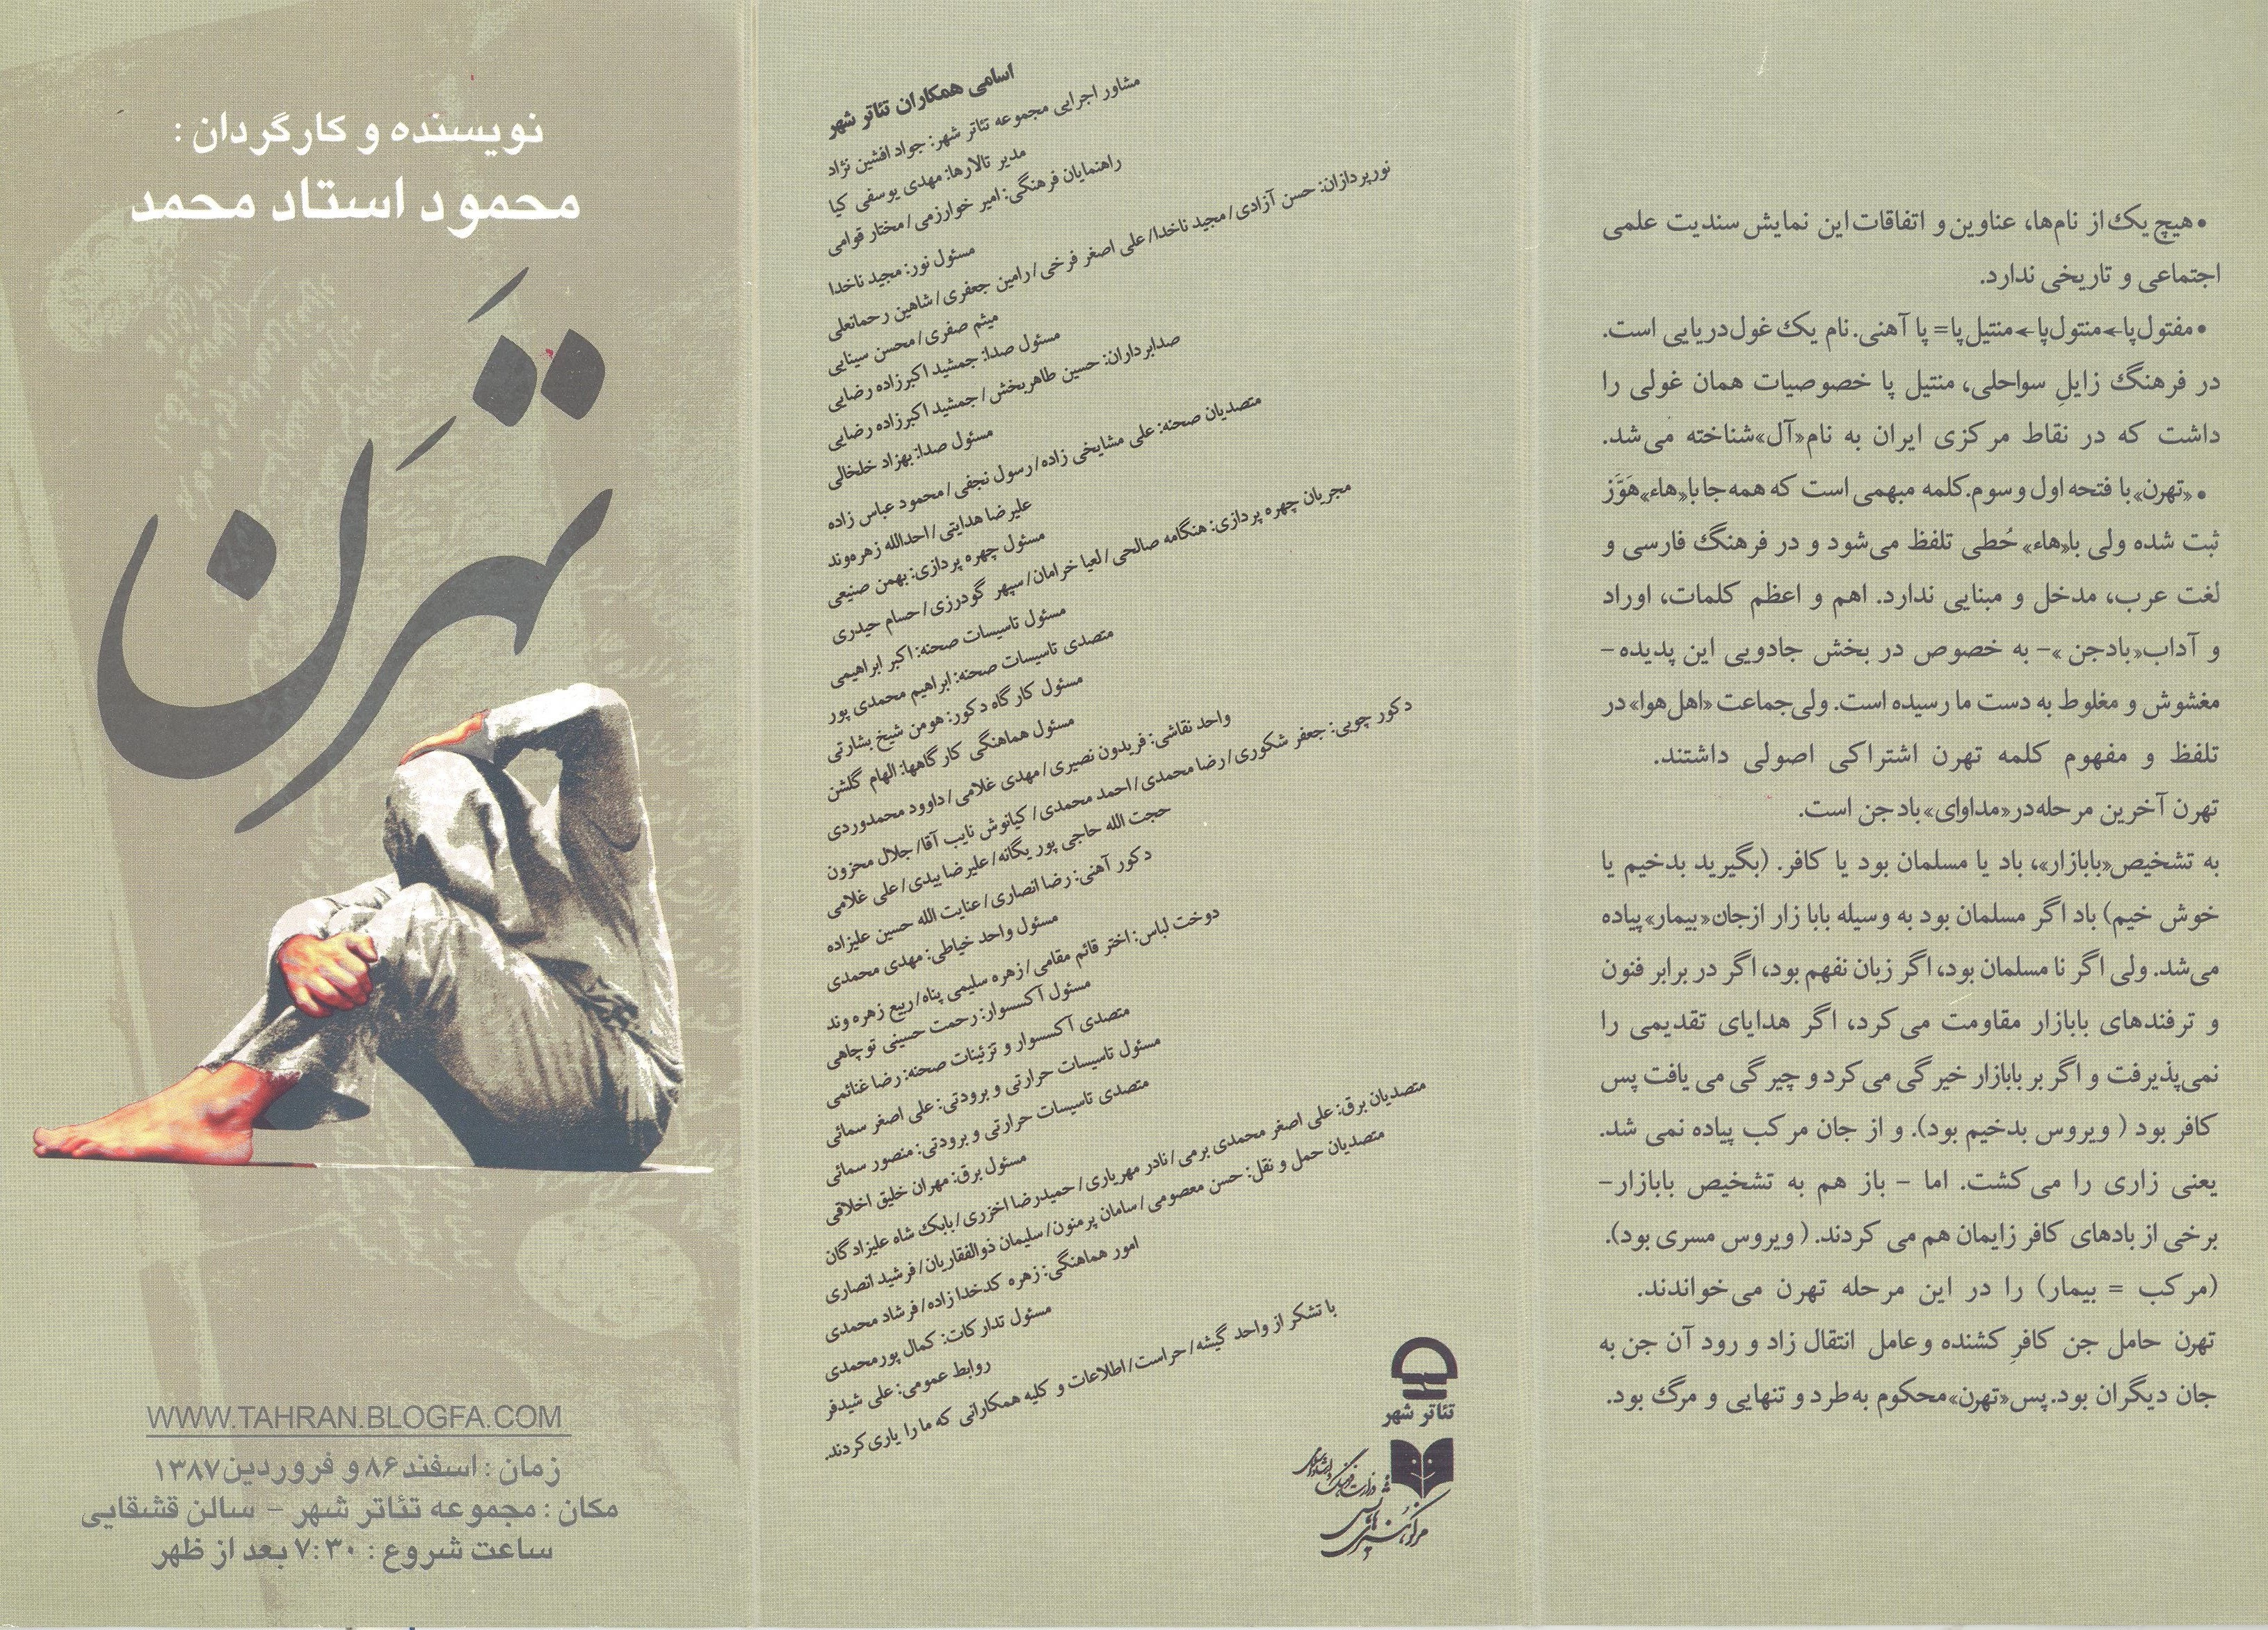 نویسنده و کارگردان :
محمود استاد محمد
تَهرَن
WWW.TAHRAN.BLOGFA.COM
زمان : اسفند ۸۶ و فروردین ۱۳۸۷
مکان : مجموعه تئاتر شهر - سالن قشقایی
ساعت شروع : ۷:۳۰ بعد از ظهر
اسامی همکاران تئاتر شهر
مشاور اجرایی مجموعه تئاتر شهر: جواد افشین نژاد
مدیر تالارها: مهدی یوسفی کیا
راهنمایان فرهنگی: امیر خوارزمی/مختار قوامی
مسئول نور: مجید ناخدا
نورپردازان: حسن آزادی/مجید ناخدا/علی اصغر فرخی/رامین جعفری/شاهین رحمانعلی
میثم صفری/محسن سینایی
مسئول صدا: جمشید اکبرزاده رضایی
صدابرداران: حسین طاهربخش/جمشید اکبرزاده رضایی
مسئول صدا: بهزاد خلخالی
متصدیان صحنه: علی مشایخی زاده/رسول نجفی/محمود عباس زاده
علیرضا هدایتی/احدالله زهره‌وند
مسئول چهره پردازی: بهمن صنیعی
مجریان چهره پردازی: هنگامه صالحی/لعیا خرامان/سپهر گودرزی/حسام حیدری
مسئول تاسیسات صحنه: اکبر ابراهیمی
متصدی تاسیسات صحنه: ابراهیم محمدی پور
مسئول کارگاه دکور: هومن شیخ بشارتی
مسئول هماهنگی کارگاهها: الهام گلشن
واحد نقاشی: فریدون نصیری/مهدی غلامی/داوود محمدوردی
دکور چوبی: جعفر شکوری/رضا محمدی/احمد محمدی/کیانوش نایب آقا/جلال محزون
حجت الله حاجی پور یگانه/علیرضا بیدی/علی غلامی
دکور آهنی: رضا انصاری/عنایت الله حسین علیزاده
مسئول واحد خیاطی: مهدی محمدی
دوخت لباس: اختر قائم مقامی/زهره سلیمی پناه/ربیع زهره وند
مسئول آکسسوار: رحمت حسینی توچاهی
متصدی آکسسوار و تزئینات صحنه: رضا غنائمی
مسئول تاسیسات حرارتی و برودتی: علی اصغر سمائی
متصدی تاسیسات حرارتی و برودتی: منصور سمائی
مسئول برق: مهران خلیق اخلاقی
متصدیان برق: علی اصغر محمدی برمی/نادر مهریاری/حمیدرضا اخزری/بابک شاه علیزادگان
متصدیان حمل و نقل: حسن معصومی/سامان پرمنون/سلیمان ذوالفقاریان/فرشید انصاری
امور هماهنگی: زهره کدخدا زاده/فرشاد محمدی
مسئول تدارکات: کمال پورمحمدی
روابط عمومی: علی شیدفر
با تشکر از واحد گیشه/حراست/اطلاعات و کلیه همکارانی که ما را یاری کردند.
تئاتر شهر
وزارت فرهنگ و ارشاد اسلامی
مرکز هنرهای نمایشی
• هیچ یک از نام‌ها، عناوین و اتفاقات این نمایش سندیت علمی
اجتماعی و تاریخی ندارد.
• مفتول‌پا←منتول‌پا←منتیل‌پا= پا آهنی. نام یک غول دریایی است.
در فرهنگ زایلِ سواحلی، منتیل پا خصوصیات همان غولی را
داشت که در نقاط مرکزی ایران به نام«آل»شناخته می‌شد.
• «تهرن» با فتحه اول و سوم. کلمه مبهمی است که همه جا با«هاء»هَوَّز
ثبت شده ولی با«هاء» حُطی تلفظ می‌شود و در فرهنگ فارسی و
لغت عرب، مدخل و مبنایی ندارد. اهم و اعظم کلمات، اوراد
و آداب«بادجن »- به خصوص در بخش جادویی این پدیده -
مغشوش و مغلوط به دست ما رسیده است. ولی جماعت «اهل هوا» در
تلفظ و مفهوم کلمه تهرن اشتراکی اصولی داشتند.
تهرن آخرین مرحله در«مداوای» باد جن است.
به تشخیص«بابازار»، باد یا مسلمان بود یا کافر. (بگیرید بدخیم یا
خوش خیم) باد اگر مسلمان بود به وسیله بابا زار از جان«بیمار»پیاده
می‌شد. ولی اگر نا مسلمان بود، اگر زبان نفهم بود، اگر در برابر فنون
و ترفندهای بابازار مقاومت می‌کرد، اگر هدایای تقدیمی را
نمی‌پذیرفت و اگر بر بابازار خیرگی می‌کرد و چیرگی می یافت پس
کافر بود ( ویروس بدخیم بود). و از جان مرکب پیاده نمی شد.
یعنی زاری را می‌کشت. اما - باز هم به تشخیص بابازار-
برخی از بادهای کافر زایمان هم می کردند. ( ویروس مسری بود).
(مرکب = بیمار) را در این مرحله تهرن می‌خواندند.
تهرن حامل جن کافرِ کشنده و عامل انتقال زاد و رود آن جن به
جان دیگران بود. پس«تهرن»محکوم به طرد و تنهایی و مرگ بود.